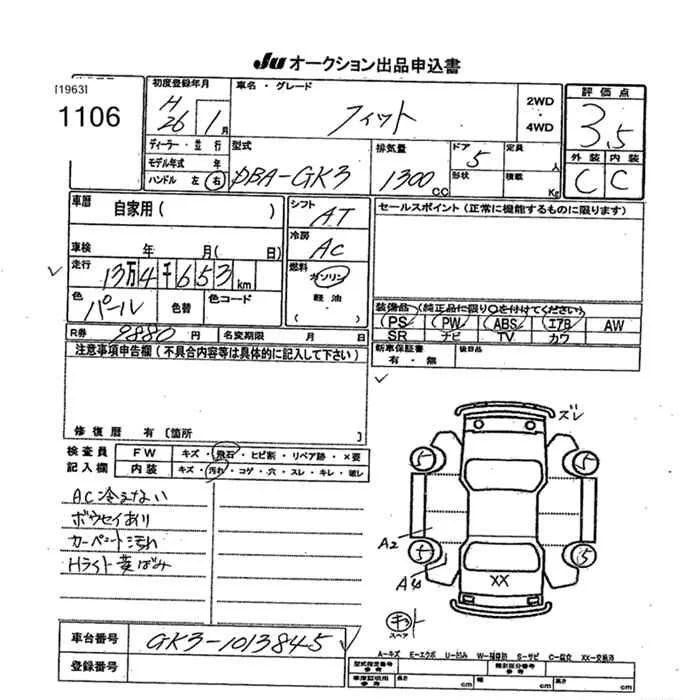 Ju オークション出品申込書
[1963]
1106
初度登録年月
H 26 1月
ディーラー・並行
モデル年式 年
ハンドル 左 右
車名・グレード
フィット
2WD
・
4WD
型式
DBA-GK3
排気量
1300 cc
ドア 5
形状
定員 人
積載 Kg
評価点
3.5
外装 内装
C C
車歴 自家用( )
車検 年 月( 日)
走行
13万4千653km
色
パール
色替
色コード
シフト
AT
冷房
AC
燃料
ガソリン
軽油
・( )
セールスポイント(正常に機能するものに限ります)
装備品(純正品に限り○を付けてください)
PS PW ABS エアB AW
SR ナビ TV カワ
新車保証書
有・無
後日品
R券 9880円 名変期限 月 日
注意事項申告欄(不具合内容等は具体的に記入して下さい)
修復歴 有〔箇所 〕
検査員
記入欄
FW キズ・飛石・ヒビ割・リペア跡・×要
内装 キズ・汚れ・コゲ・穴・スレ・キレ・破レ
A.C冷えない
ボウセイあり
カーペット汚れ
Hライト黄ばみ
ズレ
5
5
5
5
A2
XX
キット
スペア
車台番号 GK3-1013845
登録番号
A-キズ E-エクボ U-凹み W-補修跡 S-サビ C-腐食 XX-交換済
型式指定番号
参考
類別区分番号
参考
車庫証明用
参考
長さ cm
幅 cm
高さ cm